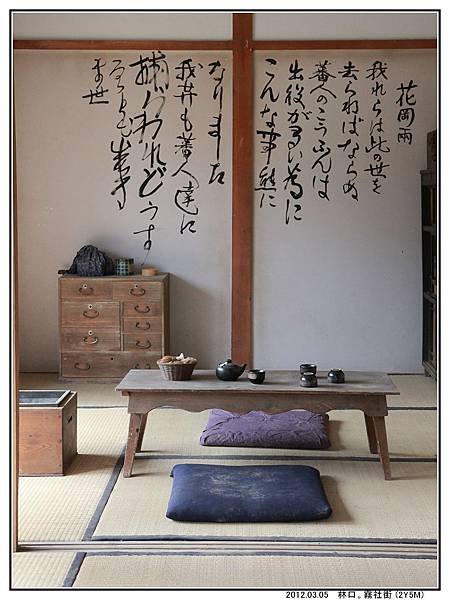 花岡両
我れらは此の世を
去らねばならぬ
蕃人のこうふんは
出役が多い為に
こんな事態に
なりました
我等も蕃人達に
捕らわれどうす
ることも出来
2012.03.05 林口。霧社街 (2Y5M)